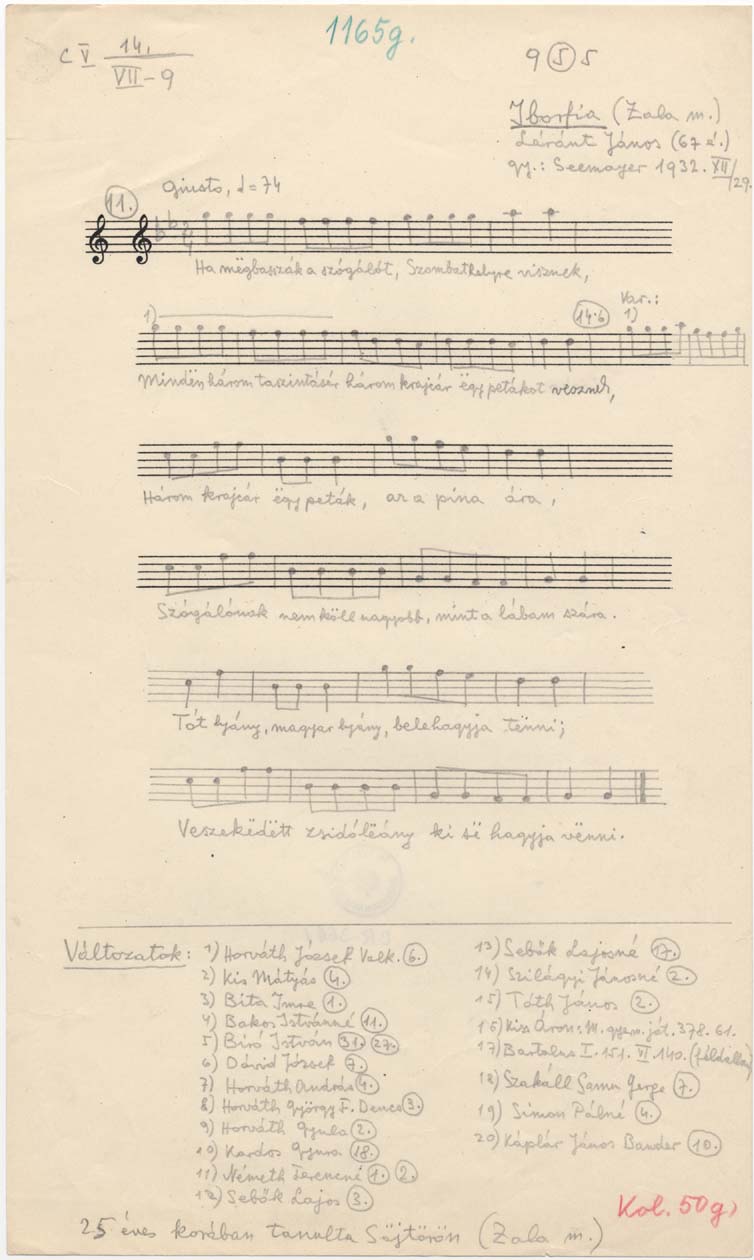 1165g.
C V 14.
VII-9
9 5 5
Iborfia (Zala m.)
Léránt János (67 é.)
gy.: Seemayer 1932. XII/29.
Giusto, ♩=74
11.
Ha mëgbasszák a szógálót, Szombathelyre visznek,
Var.:
1) 14.b 1)
Mindën három taszintásér három krajcár ëgy petákot vesznek,
Három krajcár ëgy peták, az a pina ára,
Szógálónak nem köll nagyobb, mint a lábam szára.
Tót lyány, magyar lyány, belehagyja tënni;
Veszekëdëtt zsidólëány ki së hagyja vënni.
Változatok: 1) Horváth József Valk. 6.
2) Kis Mátyás 4.
3) Bita Imre 1.
4) Bakos Istvánné 11.
5) Biró István 31. 27.
6) Dávid József 7.
7) Horváth András 4.
8) Horváth György F. Dencs 3.
9) Horváth Gyula 2.
10) Kardos Gyura 18.
11) Németh Ferencné 1. 2.
12) Sebők Lajos 3.
13) Sebők Lajosné 17.
14) Szilágyi Jánosné 2.
15) Tóth János 2.
16) Kiss Áron: M. gyerm. ját. 378. 61.
17) Bartalus I. 151. VI. 140.
18) Szakáll Samu Gerge 7.
19) Simon Pálné 4.
20) Káplár János Bander 10.
Kol. 50g)
25 éves korában tanulta Söjtörön (Zala m.)